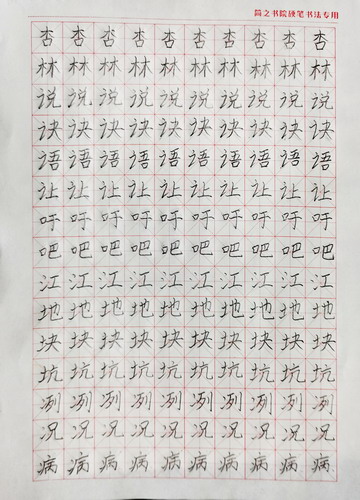 简之书院硬笔书法专用
杏杏杏杏杏杏杏杏杏杏
林林林林林林林林林林
说说说说说说说说说说
诀诀诀诀诀诀诀诀诀诀
语语语语语语语语语语
让让让让让让让让让让
吁吁吁吁吁吁吁吁吁吁
吧吧吧吧吧吧吧吧吧吧
江江江江江江江江江江
地地地地地地地地地地
块块块块块块块块块块
坑坑坑坑坑坑坑坑坑坑
冽冽冽冽冽冽冽冽冽冽
况况况况况况况况况况
病病病病病病病病病病